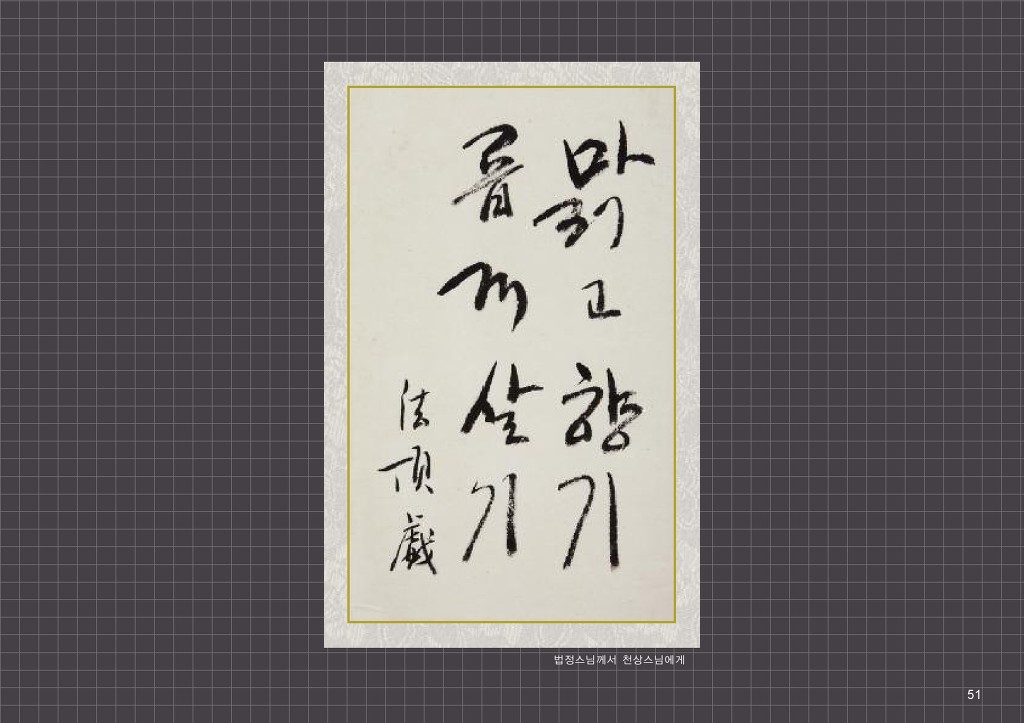 맑고 향기
롭게 살기
法頂 戱
법정스님께서 천상스님에게
51